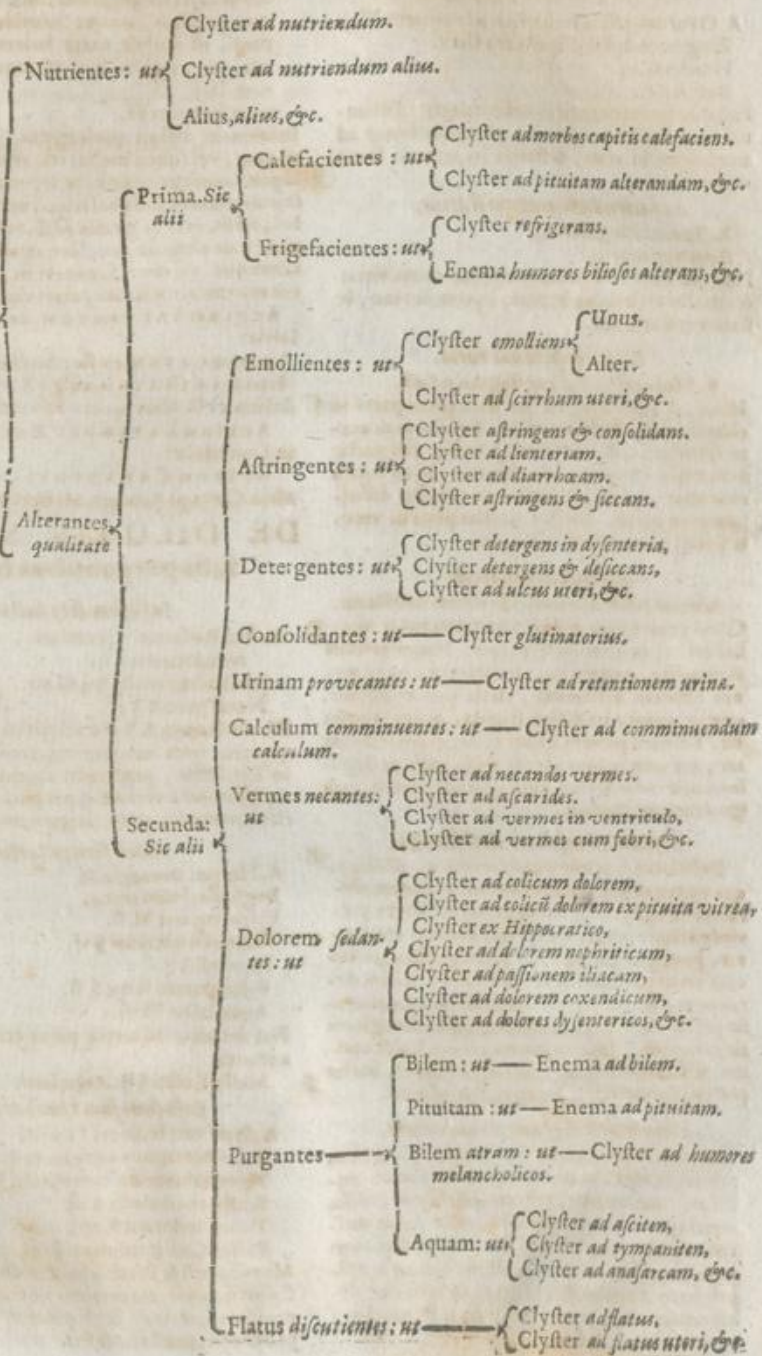 Clyſter ad nutriendum.
Nutrientes: ut Clyſter ad nutriendum alius.
Alius, alius, &c.
Prima. Sic
alii
Calefacientes : ut
Clyſter ad morbos capitis calefaciens.
Clyſter ad pituitam alterandam, &c.
Frigefacientes: ut
Clyſter refrigerans.
Enema humores bilioſos alterans, &c.
Alterantes
qualitate
Secunda:
Sic alii
Emollientes : ut
Clyſter emolliens
Unus.
Alter.
Clyſter ad ſcirrhum uteri, &c.
Aſtringentes : ut
Clyſter aſtringens & conſolidans.
Clyſter ad lienteriam.
Clyſter ad diarrhœam.
Clyſter aſtringens & ſiccans.
Detergentes: ut
Clyſter detergens in dyſenteria,
Clyſter detergens & deſiccans,
Clyſter ad ulcus uteri, &c.
Conſolidantes : ut Clyſter glutinatorius.
Urinam provocantes : ut Clyſter ad retentionem urinæ.
Calculum comminuentes : ut Clyſter ad comminuendum
calculum.
Vermes necantes:
ut
Clyſter ad necandos vermes.
Clyſter ad aſcarides.
Clyſter ad vermes in ventriculo,
Clyſter ad vermes cum febri, &c.
Dolorem ſedan-
tes : ut
Clyſter ad colicum dolorem,
Clyſter ad colicū dolorem ex pituita vitrea,
Clyſter ex Hippocratico,
Clyſter ad dolorem nephriticum,
Clyſter ad paſſionem iliacam,
Clyſter ad dolorem coxendicum,
Clyſter ad dolores dyſentericos, &c.
Purgantes
Bilem : ut Enema ad bilem.
Pituitam : ut Enema ad pituitam.
Bilem atram : ut Clyſter ad humores
melancholicos.
Aquam: ut
Clyſter ad aſciten,
Clyſter ad tympaniten,
Clyſter ad anaſarcam, &c.
Flatus diſcutientes : ut
Clyſter ad flatus,
Clyſter ad flatus uteri, &c.